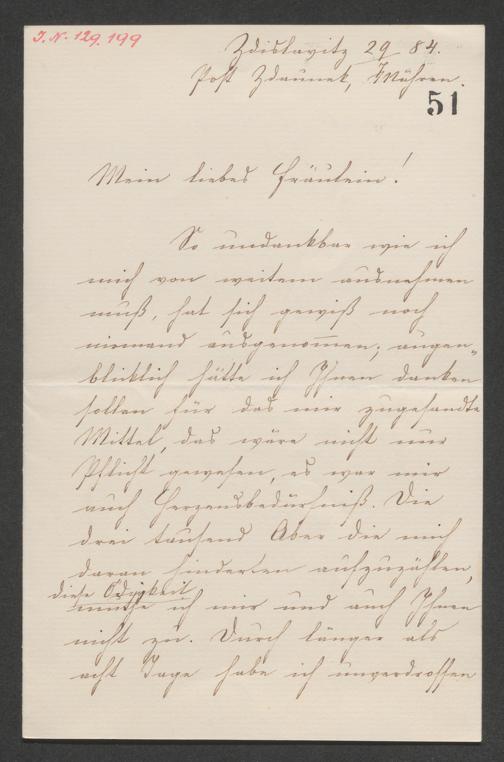 J.N. 129.199
Zdislavitz 29/ 84.
Post Zdaunek, Mähren.
51
Mein liebes Fräulein!
So undankbar wie ich
mich von weitem ausnehmen
muß, hat sich gewiß noch
niemand ausgenom̄en; augen„
blicklich hätte ich Ihnen danken
sollen für das mir zugesandte
Mittel, das wäre nicht nur
Pflicht gewesen, es war mir
auch Herzensbedürfniß. Die
drei tausend Aber die mich
daran hinderten aufzuzählen,
diese Ödigkeit
muthe ich mir und auch Ihnen
nicht zu. Durch länger als
acht Tage habe ich unverdrossen